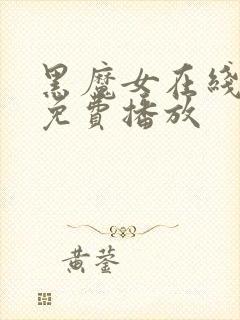 黑魔女在线
免費播放
黄蓥